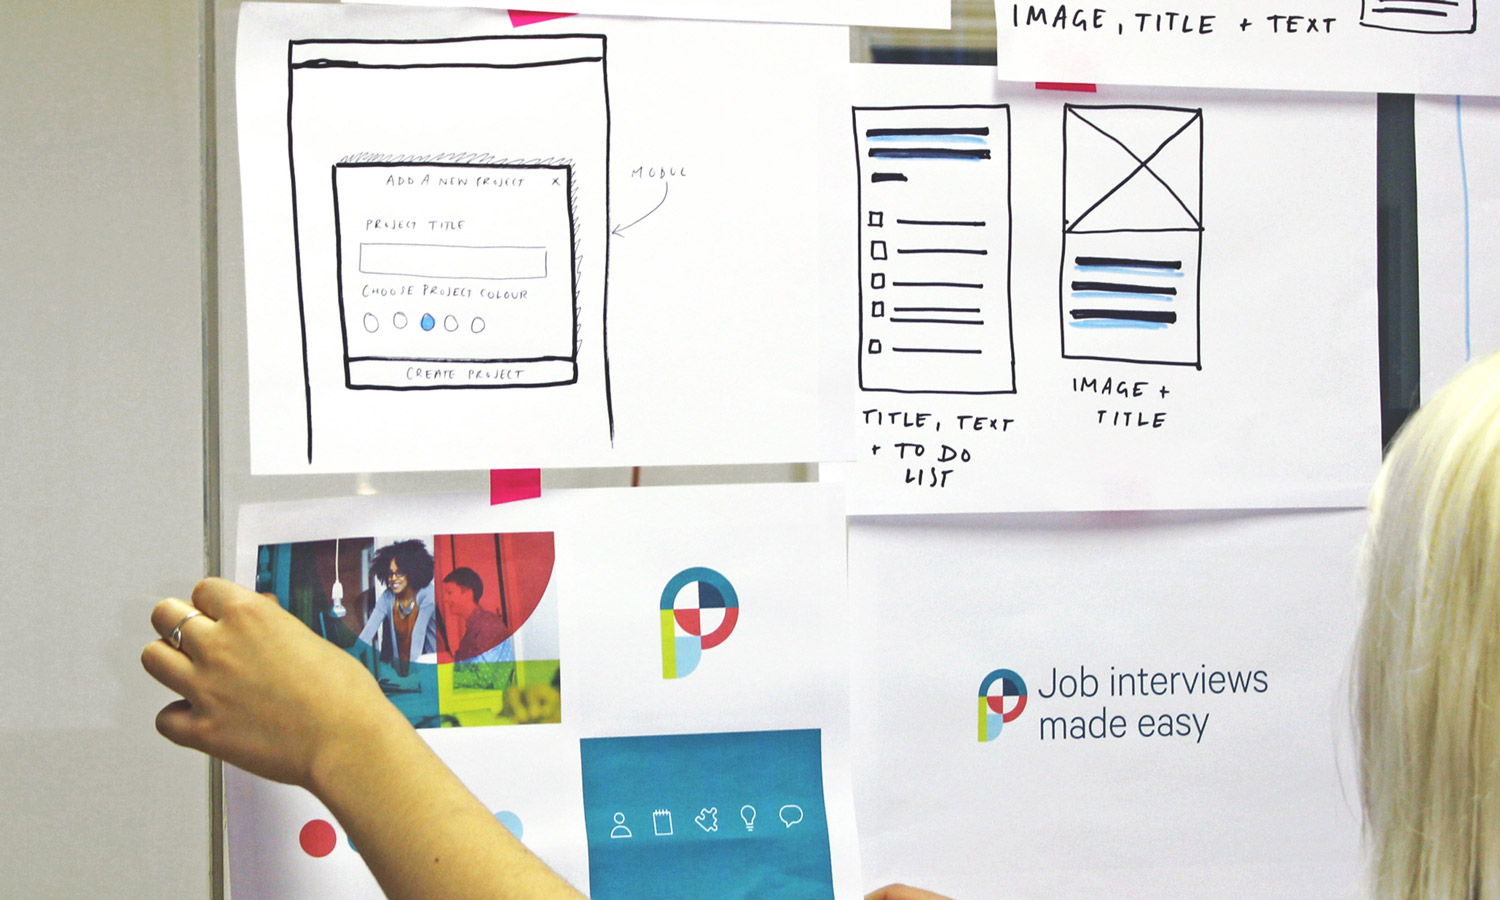 IMAGE, TITLE + TEXT
ADD A NEW PROJECT X
PROJECT TITLE
CHOOSE PROJECT COLOUR
CREATE PROJECT
MODUL
TITLE, TEXT
+ TO DO
LIST
IMAGE +
TITLE
Job interviews
made easy